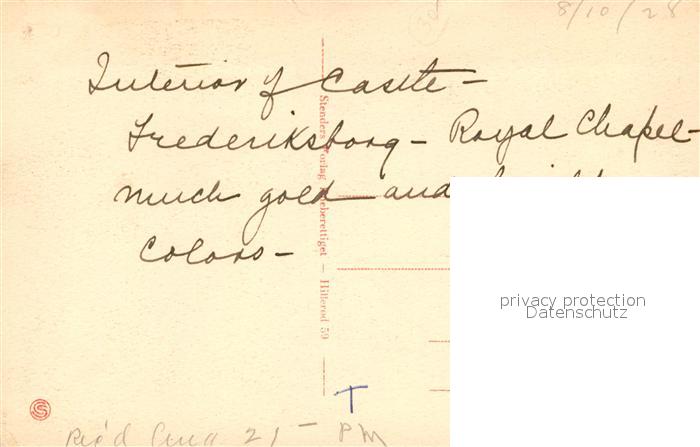 8/10/28
Interior of Castle –
Frederiksborg – Royal Chapel –
much gold and
colors –
Stenders Forlag Eneberettiget – Hillerod 59
privacy protection
Datenschutz
T
S
Rec'd Aug 21 – PM